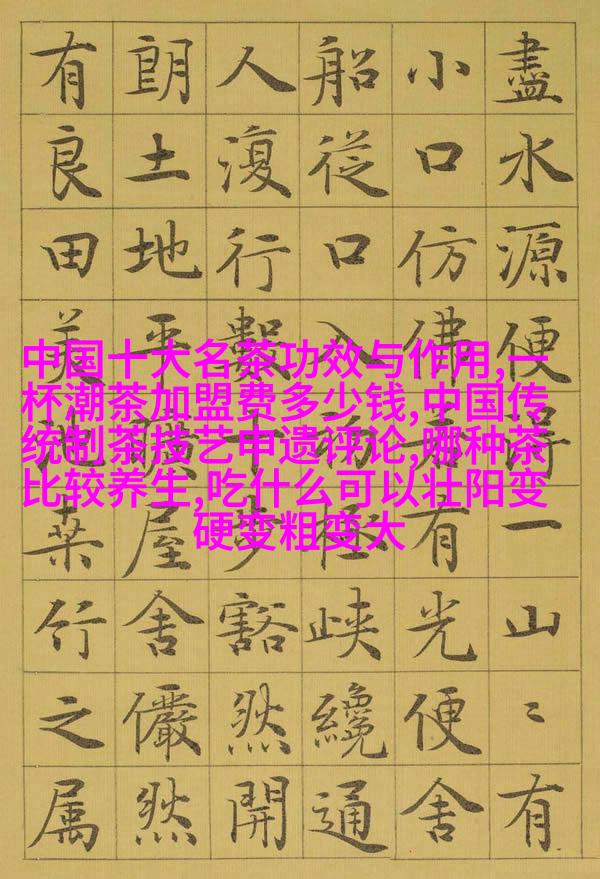 盡水源便得一山〻有
小口仿佛若有光便舍
船從口入極峽纔通
人復行數十步豁然開
朗土地平曠屋舍儼然
有良田美池桑竹之属
中国十大名茶功效与作用,一
杯潮茶加盟费多少钱,中国传
统制茶技艺申遗评论,哪种茶
比较养生,吃什么可以壮阳变
硬变粗变大